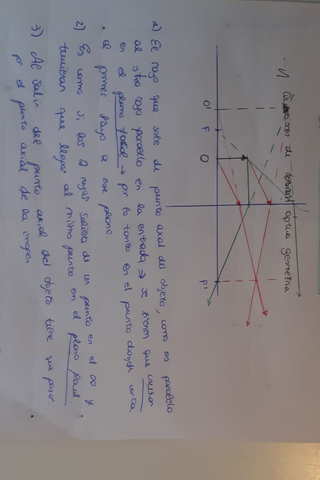 - 1) de óptica geométrica
O'
F
O
F'
1) El rayo que sale de punto axial del objeto, como es paralelo
al otro rayo paralelo en la entrada → se tienen que
en el plano focal → por lo tanto en el punto donde corta
el primer rayo a ese plano.
2) Es como si los 2 rayos salieran de un punto en el ∞ y
tuvieran que llegar al mismo punto en el plano focal.
3) Al salir del punto axial del objeto tiene que pasar
por el punto axial de la imagen